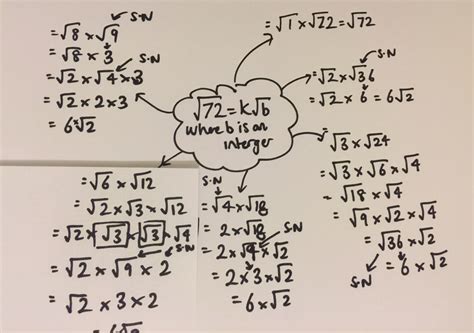 S.N
= √8 × √9
= √8 × 3
S.N
= √2 × √4 × 3
= √2 × 2 × 3
= 6×√2
= √1 × √72 = √72
S.N
= √2 × √36
= √2 × 6 = 6√2
√72 = k√b
where b is an
interger
= √3 × √24
= √3 × √6 × √4
= √18 × √4
= √9 × √2 × √4
= √36 × √2
S.N
= 6 × √2
= √6 × √12
= √2 × √3 × √12
= √2 × √3 × √3 × √4
S.N
= √2 × √9 × 2
= √2 × 3 × 2
= 6√2
S.N
= √4 × √18
= 2 × √18
S.N
= 2 × √9 × √2
= 2 × 3 × √2
= 6 × √2